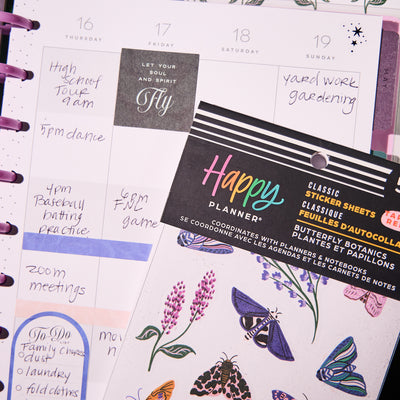 16
THURSDAY
17
FRIDAY
18
SATURDAY
19
SUNDAY
High
School
Tour
9am
LET YOUR
SOUL AND
AND SPIRIT
Fly
yard work
gardening
5pm dance
4pm
Baseball
batting
practice
6pm
FNL
game
zoom
meetings
To Do
Family Chores
dust
laundry
fold clothes
Happy
PLANNER®
CLASSIC
STICKER SHEETS
CLASSIQUE
FEUILLES D'AUTOCOLLA
BUTTERFLY BOTANICS
PLANTES ET PAPILLONS
COORDINATES WITH PLANNERS & NOTEBOOKS
SE COORDONNE AVEC LES AGENDAS ET LES CARNETS DE NOTES